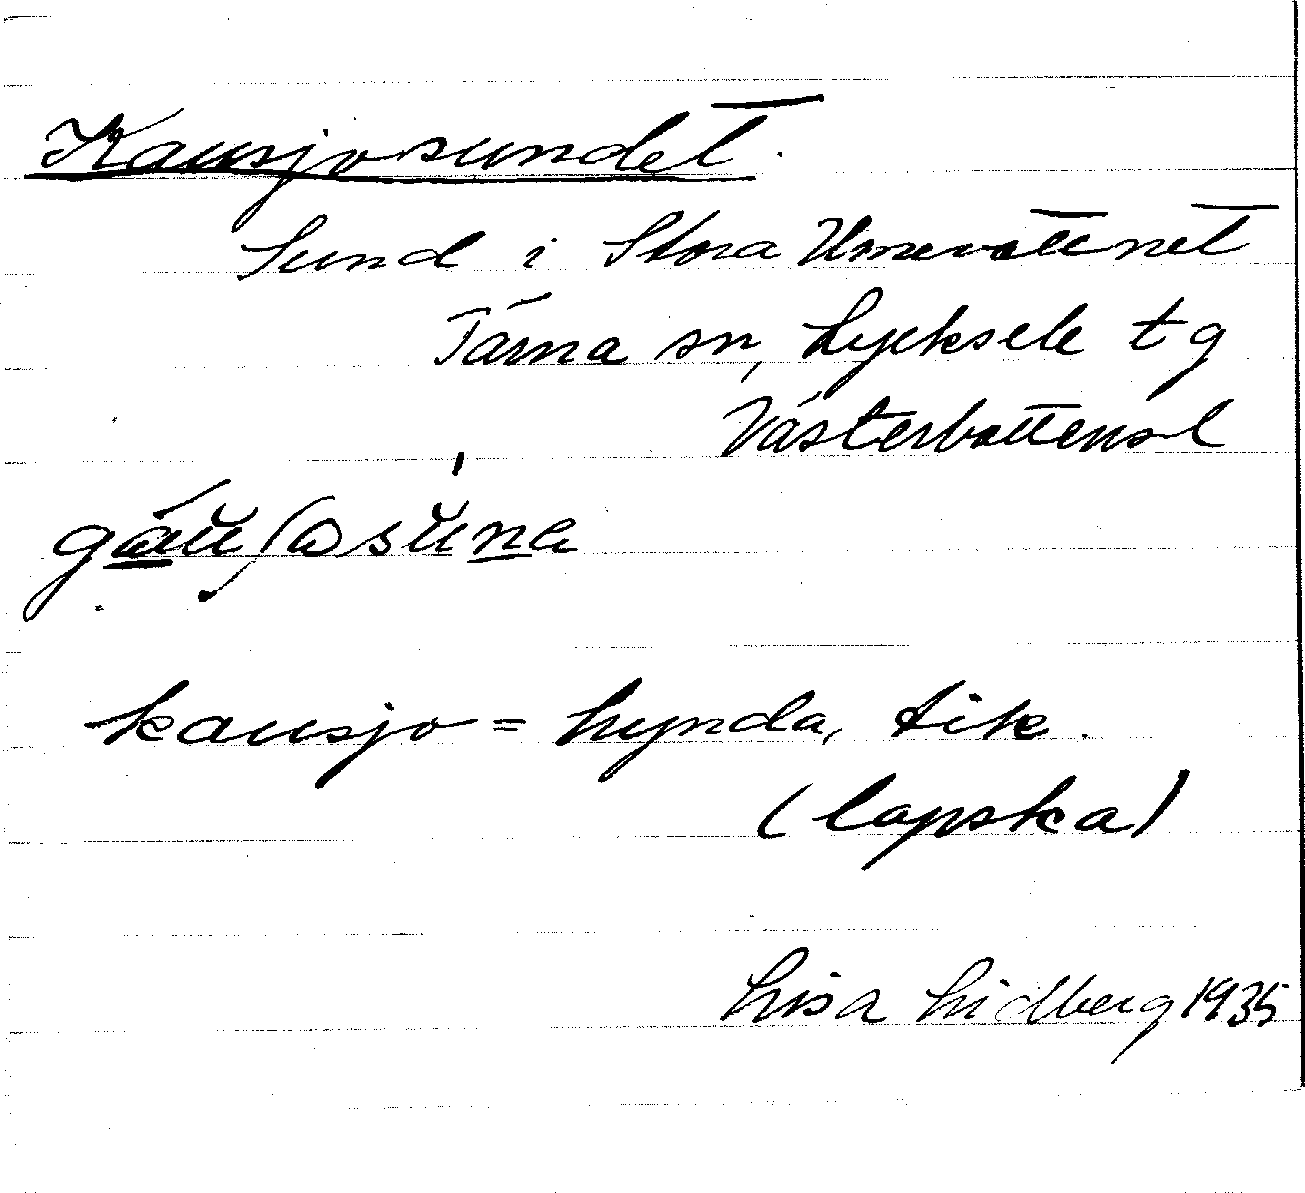 Kausjosundet.
Sund i Stora Umevattnet
Tärna sn, Lycksele tg
Västerbottens l
gäuʃosuna
kausjo = hynda, tik.
(lapska)
Lisa Lidberg 1935